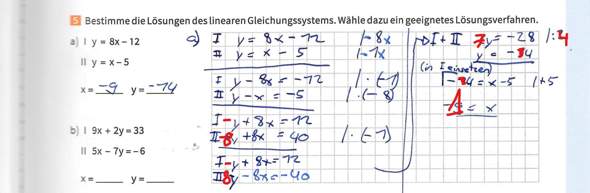 5 Bestimme die Lösungen des linearen Gleichungssystems. Wähle dazu ein geeignetes Lösungsverfahren.
a) I y = 8x – 12
II y = x – 5
x = -9 y = -14
b) I 9x + 2y = 33
II 5x – 7y = –6
x = ____ y = ____
a) I y = 8x - 12 |- 8x
II y = x - 5 |- 1x
I y - 8x = -12 | · (-1)
II y - x = -5 | · (-8)
I -y + 8x = 12
II -8y + 8x = 40 | · (-1)
I -y + 8x = 12
II 8y - 8x = -40
I + II 7y = -28 |: 4
y = -14
(in I einsetzen)
-14 = x - 5 | + 5
= x